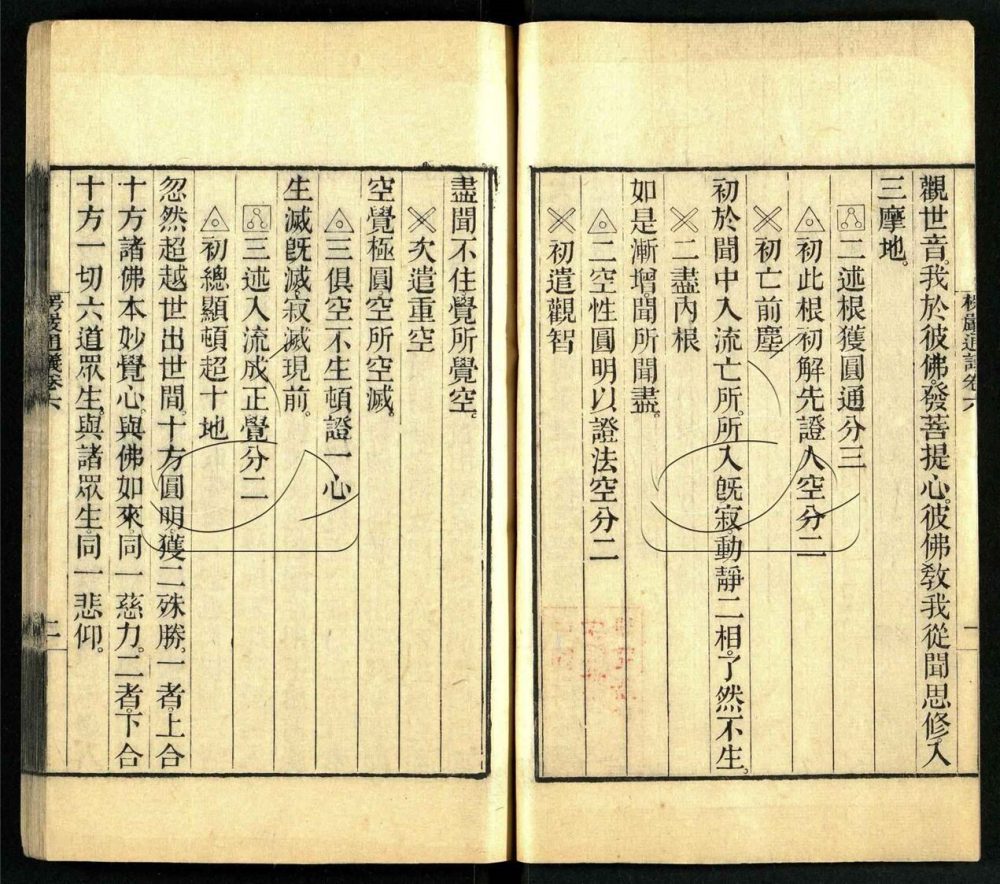 觀世音。我於彼佛。發菩提心。彼佛教我從聞思修。入
三摩地。
二述根獲圓通分三
初此根初解先證人空分二
初亡前塵
初於聞中。入流亡所。所入旣寂。動靜二相。了然不生。
二盡內根
如是漸增。聞所聞盡。
二空性圓明以證法空分二
初遣觀智
盡聞不住。覺所覺空。
次遣重空
空覺極圓。空所空滅。
三俱空不生頓證一心
生滅旣滅。寂滅現前。
三述入流成正覺分二
初總顯頓超十地
忽然超越世出世間。十方圓明。獲二殊勝。一者。上合
十方諸佛本妙覺心。與佛如來。同一慈力。二者。下合
十方一切六道眾生。與諸眾生。同一悲仰。